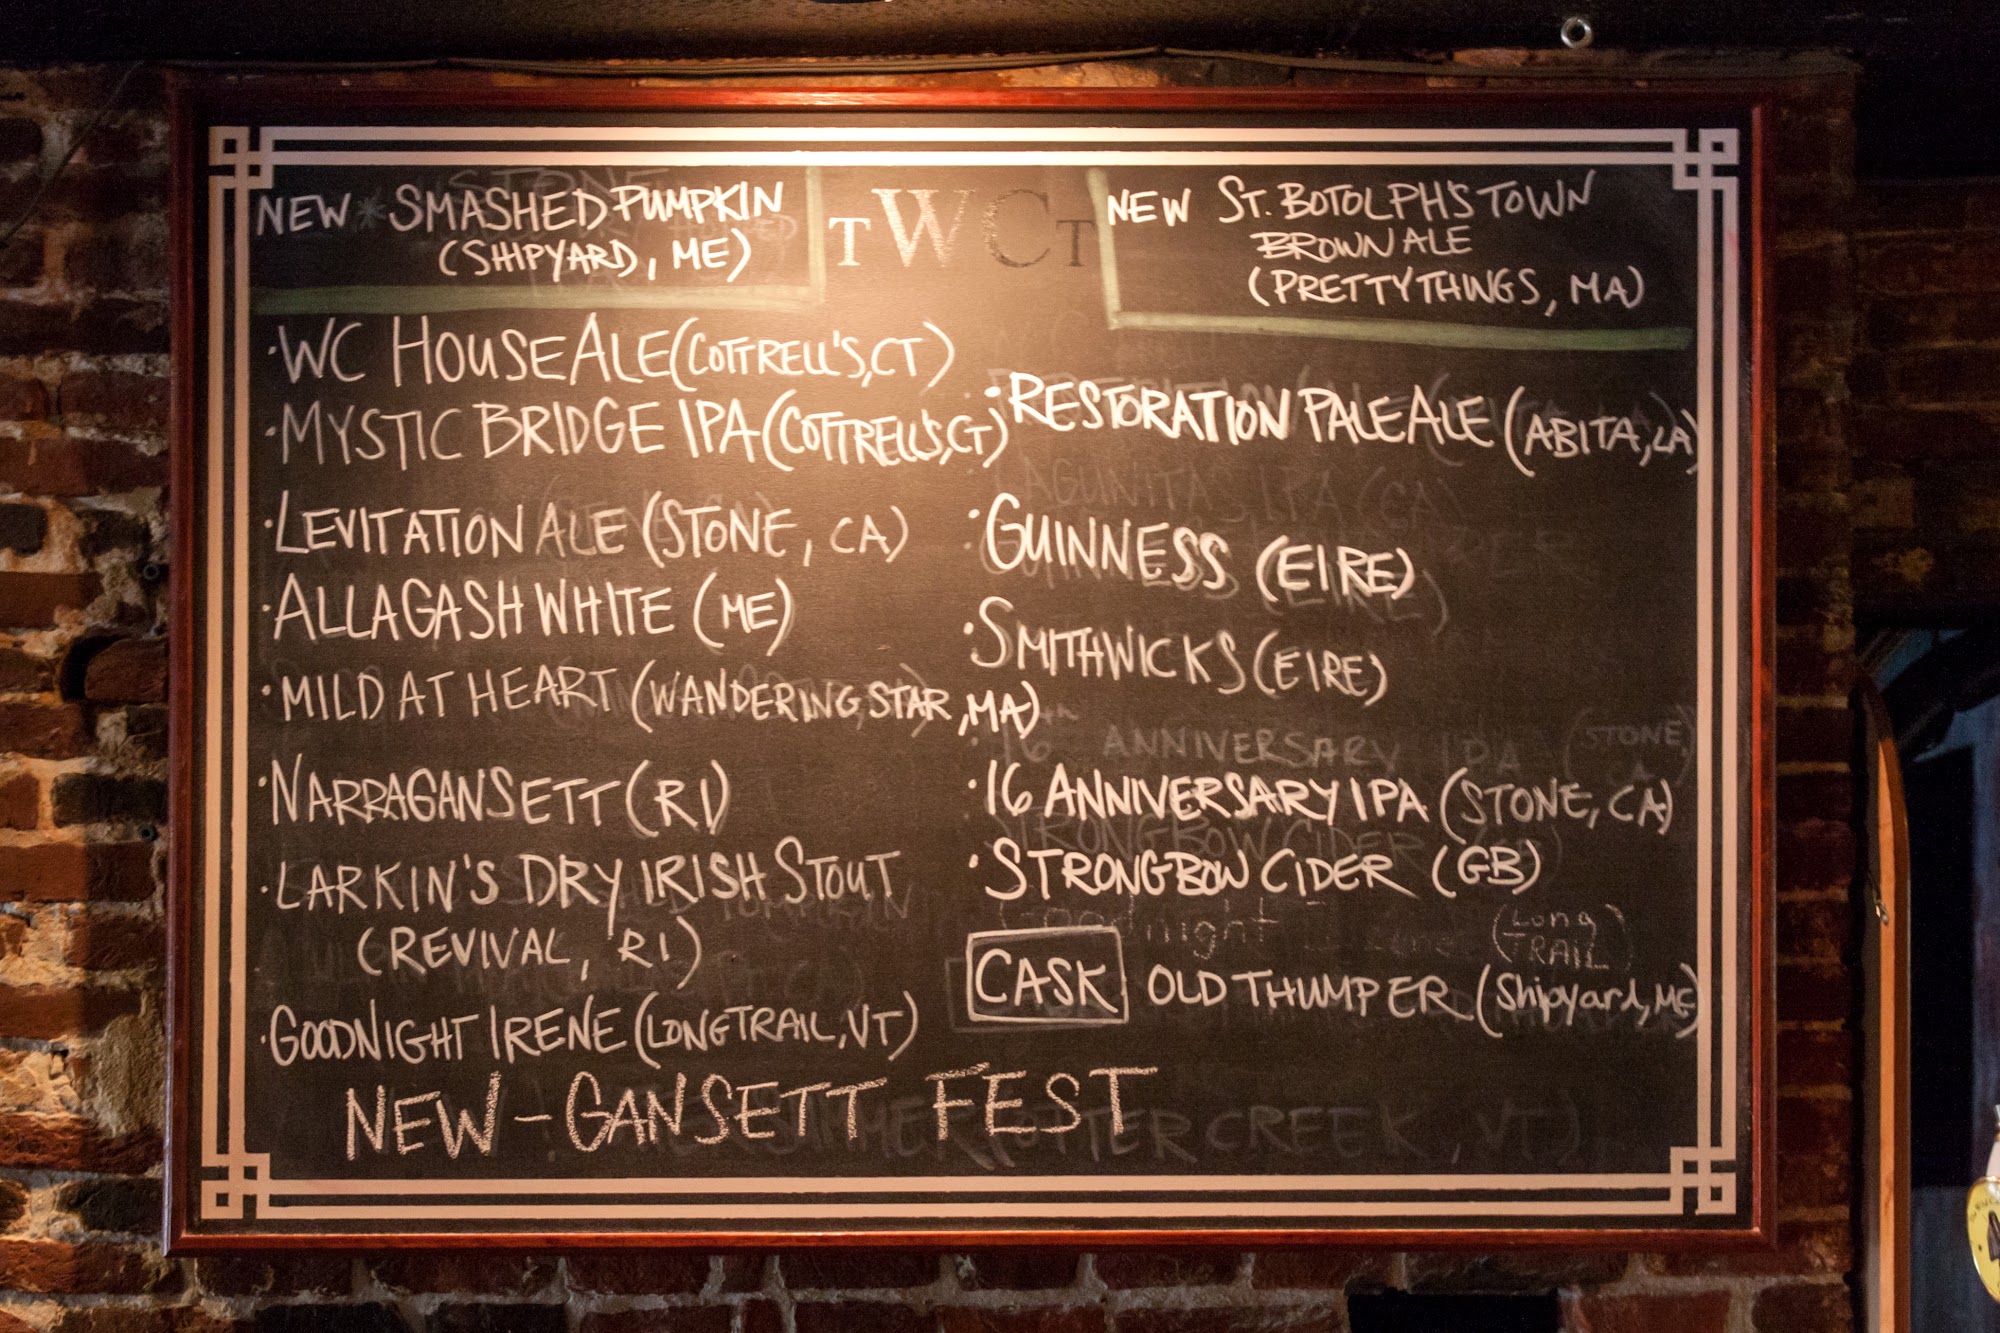 NEW * SMASHED PUMPKIN
(SHIPYARD, ME)
TWCT
NEW ST. BOTOLPH'S TOWN
BROWN ALE
(PRETTY THINGS, MA)
·WC HOUSE ALE (COTTRELL'S, CT)
·MYSTIC BRIDGE IPA (COTTRELL'S, CT)
·LEVITATION ALE (STONE, CA)
·ALLAGASH WHITE (ME)
·MILD AT HEART (WANDERING STAR, MA)
·NARRAGANSETT (RI)
·LARKIN'S DRY IRISH STOUT
(REVIVAL, RI)
·GOODNIGHT IRENE (LONG TRAIL, VT)
NEW - GANSETT FEST
·RESTORATION PALE ALE (ABITA, LA)
LAGUNITAS IPA (CA)
·GUINNESS (EIRE)
·SMITHWICKS (EIRE)
16th ANNIVERSARY IPA (STONE, CA)
·16 ANNIVERSARY IPA (STONE, CA)
STRONGBOW CIDER
·STRONGBOW CIDER (GB)
Goodnight Irene (Long TRAIL)
CASK OLD THUMPER (Shipyard, ME)
OTTER CREEK, VT)